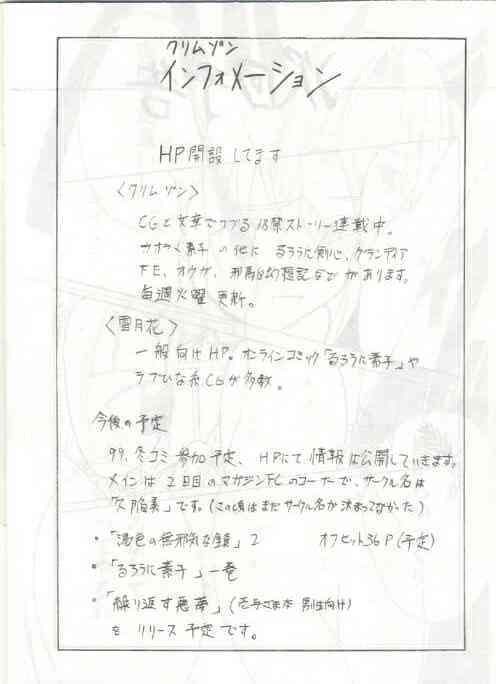 クリムゾン
インフォメーション
HP開設してます
〈クリムゾン〉
CGと文章でつづる18禁ストーリー連載中。
素子の他に るろうに剣心、グランディア
FE、オウガ、などがあります。
毎週火曜更新。
〈雪月花〉
一般向けHP。オンラインコミック「るろうに素子」や
ラブひな系CGが多数。
今後の予定
99.冬コミ参加予定、HPにて情報は公開していきます。
メインは2日目のマガジンFCのコーナーで、サークル名は
です。(この頃はまだサークル名が決まってなかった)
・「湯色の無邪気な鎖」2 オフセット36P(予定)
・「るろうに素子」一巻
・「繰り返す悪夢」(男性向け)
を リリース予定です。